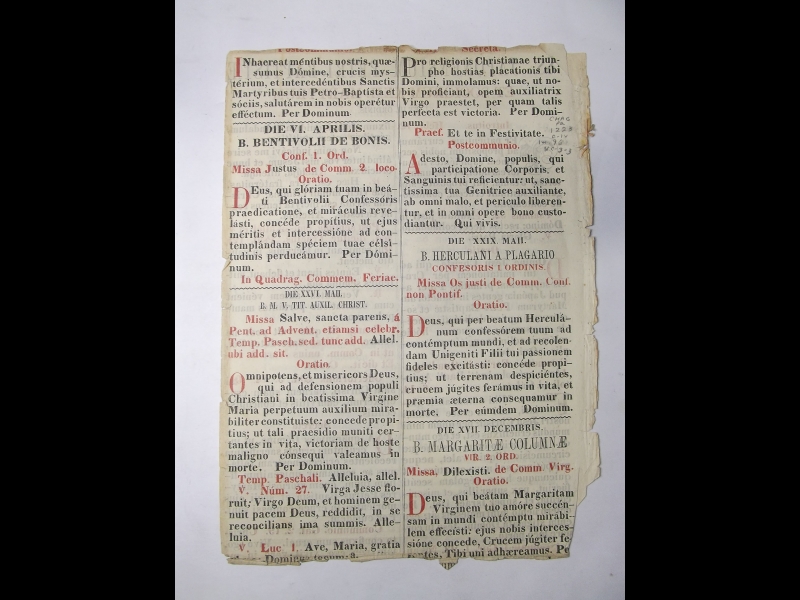 Postcommunio.
INhaereat méntibus nostris, quæ-
sumus Dómine, crucis mys-
térium, et intercedéntibus Sanctis
Martyribus tuis Petro-Baptista et
sóciis, salutárem in nobis operétur
efféctum. Per Dominum
DIE VI. APRILIS.
B. BENTIVOLII DE BONIS.
Conf. 1. Ord.
Missa Justus de Comm. 2. loco
Oratio.
DEus, qui glóriam tuam in beá-
ti Bentivolii Confessóris
praedicatione, et miráculis reve-
lásti, concéde propítius, ut ejus
méritis et intercessióne ad con-
templándam spéciem tuae célsi-
tudinis perducámur. Per Dómi-
num.
In Quadrag. Commem. Feriae.
DIE XXVI. MAII.
B. M. V. TIT. AUXIL. CHRIST.
Missa Salve, sancta parens, á
Pent. ad Advent. etiamsi celebr.
Temp. Pasch. sed tunc add. Allel.
ubi add. sit.
Oratio
Omnipotens, et misericors Deus,
qui ad defensionem populi
Christiani in beatissima Virgine
Maria perpetuum auxilium mira-
biliter constituiste: concede propi-
tius; ut tali praesidio muniti cer-
tantes in vita, victoriam de hoste
maligno cónsequi valeamus in
morte. Per Dominum.
Temp. Paschali. Alleluia, allel.
V. Núm. 27. Virga Jesse flo-
ruit: Virgo Deum, et hominem ge-
nuit pacem Deus, reddidit, in se
reconcilians ima summis. Alle-
luia.
V. Luc 1. Ave, Maria, gratia
Secreta.
Pro religionis Christianae trium-
pho hostias placationis tibi
Domini, immolamus: quae, ut no-
bis proficiant, opem auxiliatrix
Virgo praestet, per quam talis
perfecta est victoria. Per Domi-
num.
Praef. Et te in Festivitate.
Postcommunio.
Adesto, Domine, populis, qui
participatione Corporis, et
Sanguinis tui reficientur: ut, sanc-
tissima tua Genitrice auxiliante,
ab omni malo, et periculo liberen-
tur, et in omni opere bono custo-
diantur. Qui vivis.
DIE XXIX. MAII.
B. HERCULANI A PLAGARIO
CONFESORIS 1 ORDINIS
Missa Os justi de Comm. Conf.
non Pontif.
Oratio.
Deus, qui per beatum Herculá-
num confessórem tuum ad
contémptum mundi, et ad recolen-
dam Unigeniti Filii tui passionem
fideles excitásti: concéde propí-
tius; ut terrenam despiciéntes,
crucem júgiter ferámus in vita, et
præmia æterna consequamur in
morte. Per eúmdem Dominum.
DIE XVII. DECEMBRIS.
B. MARGARITÆ COLUMNÆ
VIR. 2. ORD.
Missa. Dilexisti. de Comm. Virg.
Oratio.
Deus, qui beátam Margaritam
Virginem tuo amóre succén-
sam in mundi contémptu mirábi-
lem effecísti: ejus nobis interces-
sióne concede, Crucem júgiter fe
Tibi uni adhæreamus. Pe